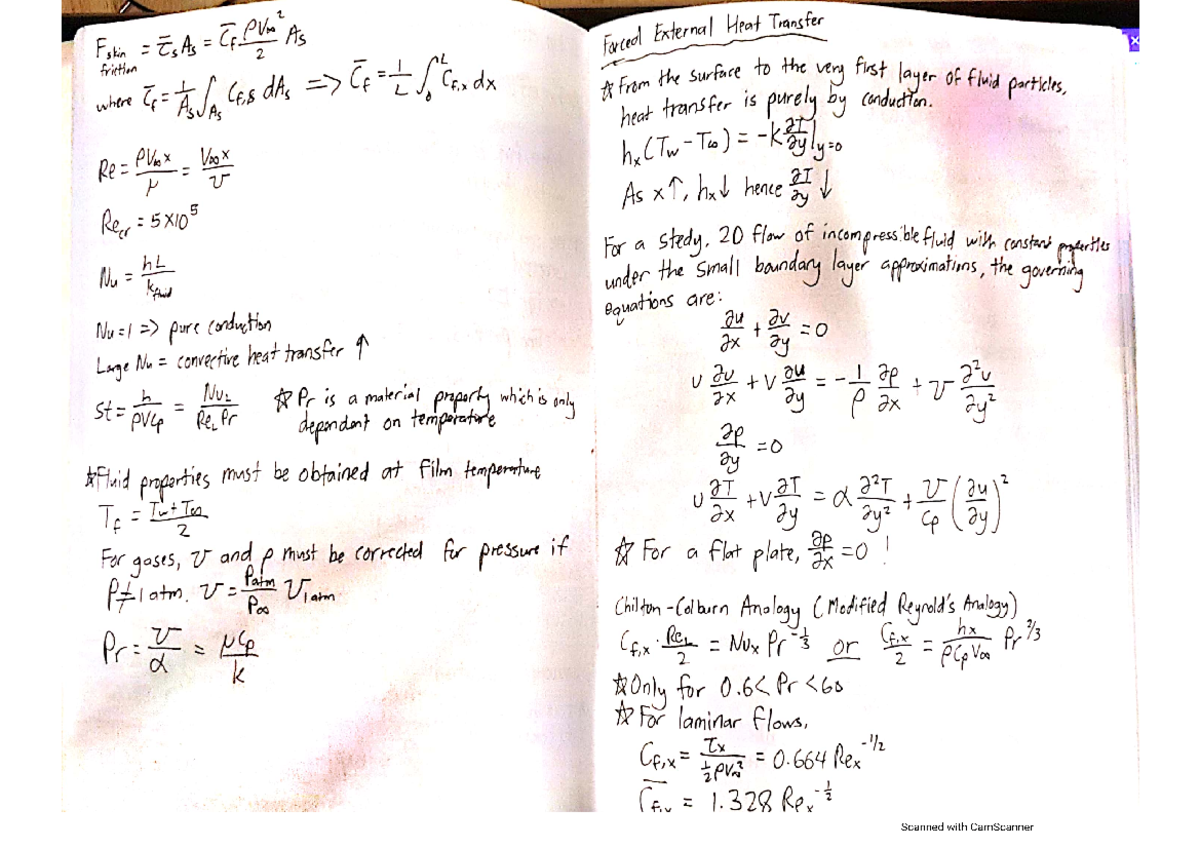 F skin friction = τ̄s As = C̄f ρV∞²/2 As
where C̄f = 1/As ∫As Cf,s dAs => C̄f = 1/L ∫0^L Cf,x dx
Re = ρV∞x/μ = V∞x/ν
Recr = 5x10^5
Nu = hL/kfluid
Nu=1 => pure conduction
Large Nu = convective heat transfer ↑
St = h/ρVCp = NuL/ReL Pr ☆ Pr is a material property which is only
dependent on temperature
☆Fluid properties must be obtained at film temperature
Tf = Tw+T∞/2
For gases, ν and ρ must be corrected for pressure if
P≠1atm. ν = Patm/P∞ ν1atm
Pr = ν/α = μCp/k
Forced External Heat Transfer
☆From the surface to the very first layer of fluid particles,
heat transfer is purely by conduction.
hx(Tw-T∞) = -k ∂T/∂y|y=0
As x↑, hx↓ hence ∂T/∂y ↓
For a stedy, 2D flow of incompressible fluid with constant properties
under the small boundary layer approximations, the governing
equations are:
∂u/∂x + ∂v/∂y = 0
u ∂u/∂x + v ∂u/∂y = -1/ρ ∂p/∂x + ν ∂²u/∂y²
∂p/∂y = 0
u ∂T/∂x + v ∂T/∂y = α ∂²T/∂y² + ν/Cp (∂u/∂y)²
☆ For a flat plate, ∂p/∂x = 0 !
Chilton-Colburn Analogy (Modified Reynold's Analogy)
Cf,x · ReL/2 = Nux Pr^-1/3 or Cf,x/2 = hx/ρCpV∞ Pr^2/3
☆Only for 0.6< Pr <60
☆ For laminar flows,
Cf,x = τx/½ρV∞² = 0.664 Rex^-1/2
C̄f,x = 1.328 Rex^-1/2
Scanned with CamScanner